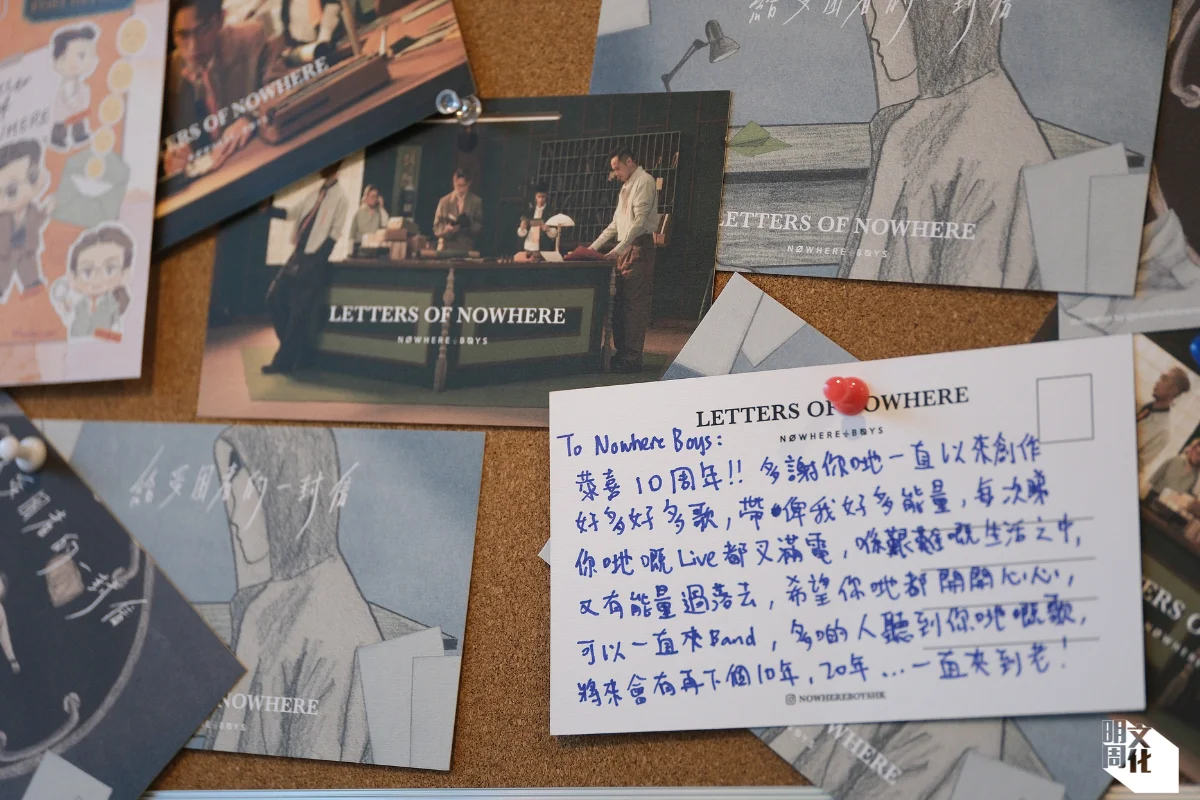 給受困者的一封信
TERS OF NOWHERE
LETTERS OF NOWHERE
NØWHERE÷BØYS
LETTERS OF NOWHERE
NØWHERE÷BØYS
給受困者的一封信
NOWHERE
受困者的一封信
LETTERS OF NOWHERE
NØWHERE÷BØYS
To Nowhere Boys:
恭喜10周年!! 多謝你哋一直以來創作
好多好多歌，帶俾我好多能量，每次睇
你哋嘅Live都又滿電，喺艱難嘅生活之中，
又有能量過落去，希望你哋都開開心心，
可以一直夾Band，多啲人聽到你哋嘅歌，
將來會有再下個10年，20年...一直夾到老！
NOWHEREBOYSHK
WHERE
明周文化